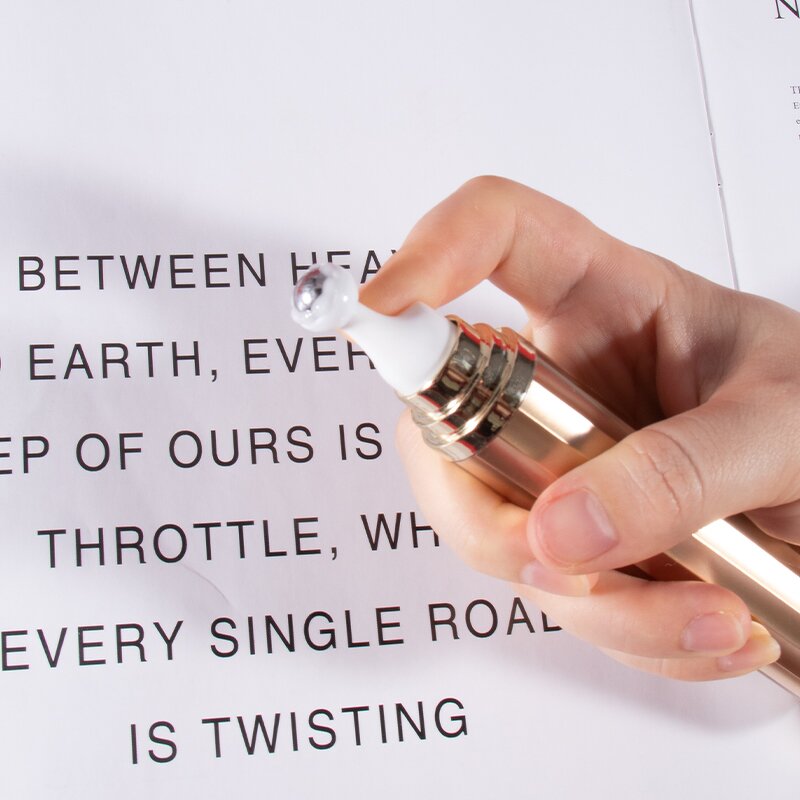 BETWEEN
EARTH,
OF OURS IS
THROTTLE,
EVERY SINGLE ROAD
IS TWISTING